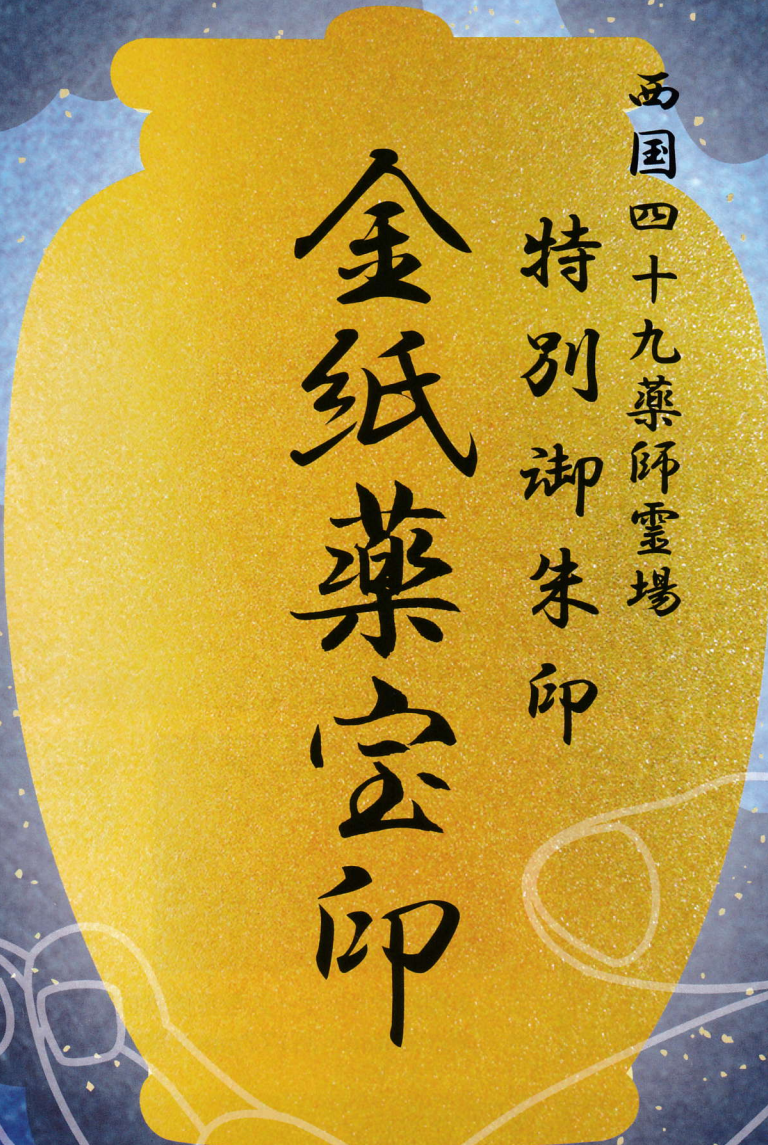 西国四十九薬師霊場
特別御朱印
金紙薬宝印